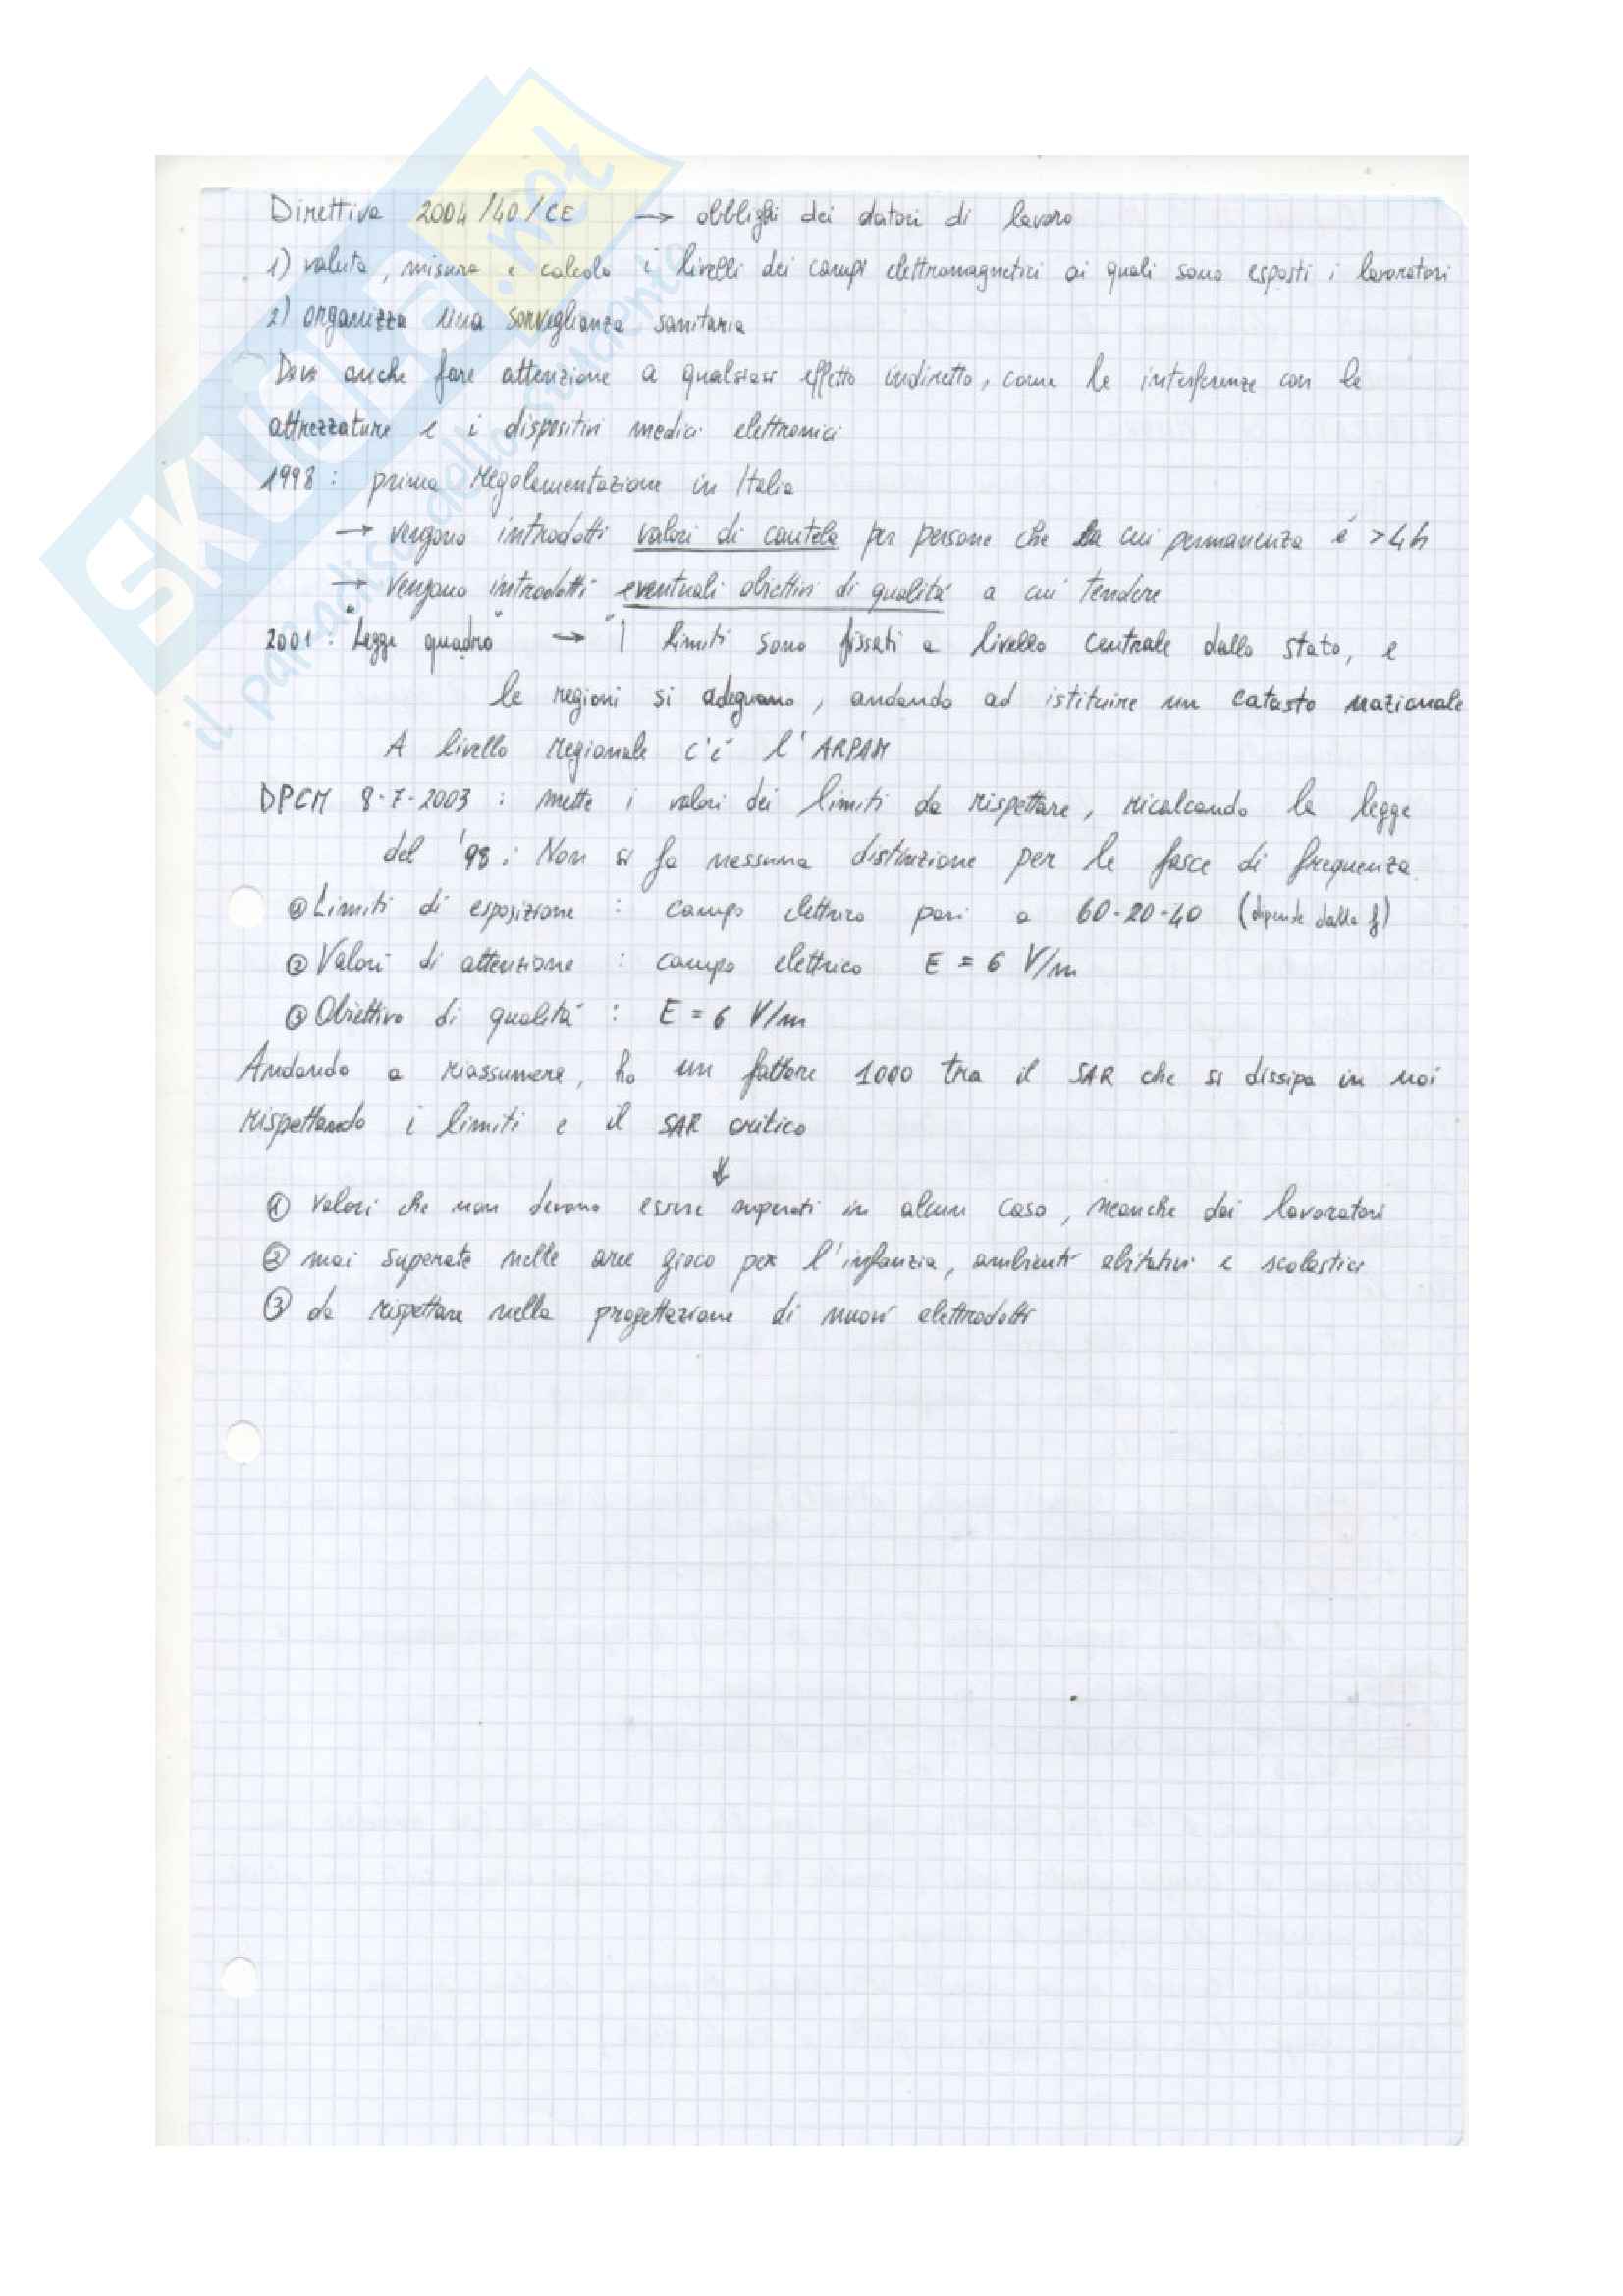 SKUOLA.net
il paradiso dello studente
Direttiva 2004/40/CE → obblighi dei datori di lavoro
1) valuta, misura e calcola i livelli dei campi elettromagnetici ai quali sono esposti i lavoratori
2) organizza una sorveglianza sanitaria
Deve anche fare attenzione a qualsiasi effetto indiretto, come le interferenze con le
attrezzature e i dispositivi medici elettronici
1998: prima regolamentazione in Italia
→ vengono introdotti valori di cautela per persone che la cui permanenza é >4h
→ vengono introdotti eventuali obiettivi di qualità a cui tendere
2001: "Legge quadro" → I limiti sono fissati a livello centrale dallo stato, e
le regioni si adeguano, andando ad istituire un catasto nazionale
A livello regionale c'é l'ARPAM
DPCM 8-7-2003: mette i valori dei limiti da rispettare, ricalcando la legge
del '98: Non si fa nessuna distinzione per le fasce di frequenza.
① Limiti di esposizione: campo elettrico pari a 60-20-40 (dipende dalla f)
② Valori di attenzione: campo elettrico E = 6 V/m
③ Obiettivo di qualità: E = 6 V/m
Andando a riassumere, ho un fattore 1000 tra il SAR che si dissipa in noi
rispettando i limiti e il SAR critico
↓
① valori che non devono essere superati in alcun caso, neanche dai lavoratori
② mai superate nelle aree gioco per l'infanzia, ambienti abitativi e scolastici
③ da rispettare nella progettazione di nuovi elettrodotti